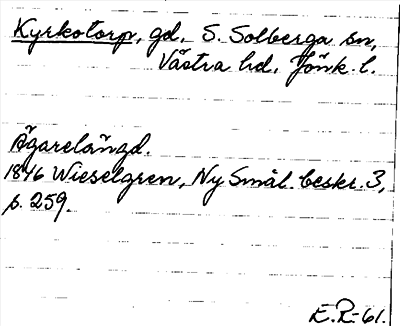 Kyrkotorp, gd. S. Solberga sn,
Västra hd. Jönk. l.
Ägarelängd.
1846 Wieselgren, Ny Smål. beskr. 3,
s. 259.
E.R-61.